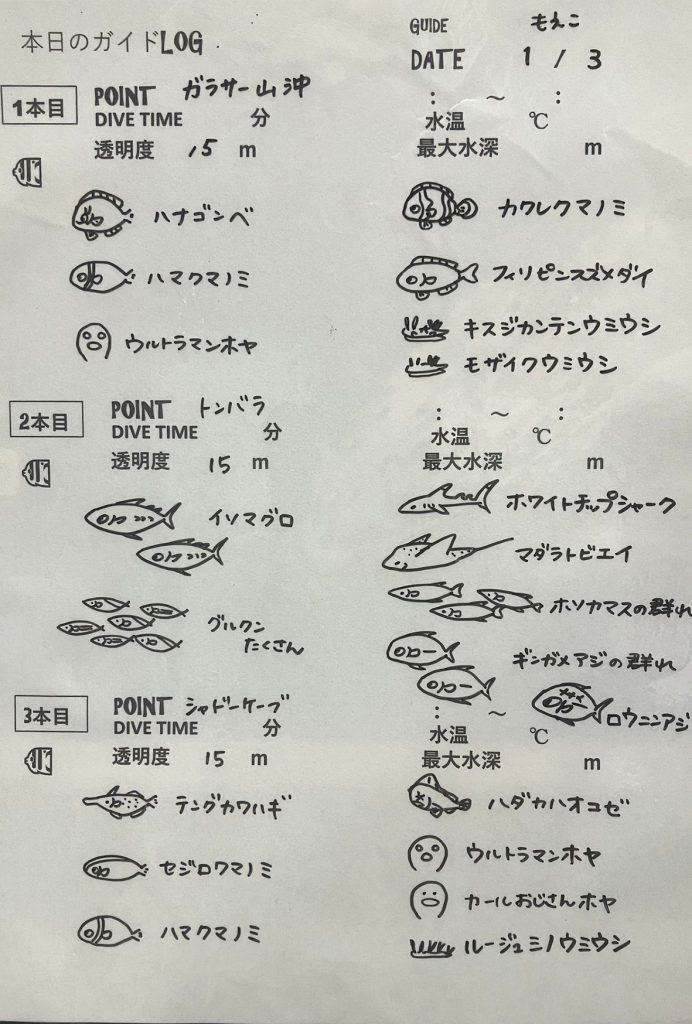 本日のガイドLOG
GUIDE もえこ
DATE 1 / 3
1本目
POINT ガラサー山沖
DIVE TIME 分
: ～ :
水温 ℃
透明度 15 m
最大水深 m
ハナゴンベ
カクレクマノミ
ハマクマノミ
フィリピンスズメダイ
ウルトラマンホヤ
キスジカンテンウミウシ
モザイクウミウシ
2本目
POINT トンバラ
DIVE TIME 分
: ～ :
水温 ℃
透明度 15 m
最大水深 m
イソマグロ
ホワイトチップシャーク
マダラトビエイ
グルクン
たくさん
ホソカマスの群れ
ギンガメアジの群れ
ロウニンアジ
3本目
POINT シャドーケーブ
DIVE TIME 分
: ～
水温 ℃
透明度 15 m
最大水深 m
テングカワハギ
ハダカハオコゼ
セジロクマノミ
ウルトラマンホヤ
カールおじさんホヤ
ハマクマノミ
ルージュミノウミウシ